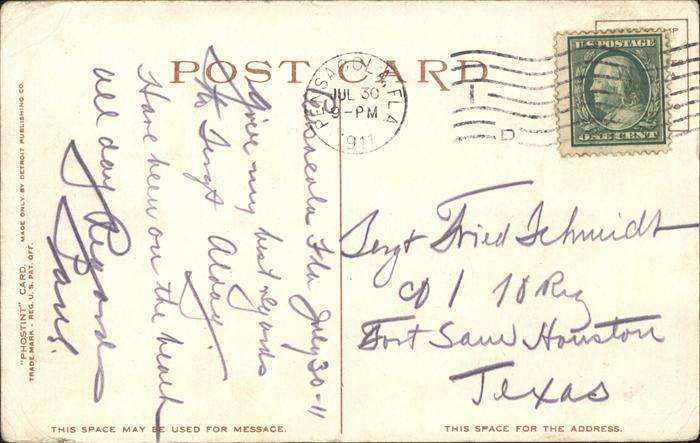 POST CARD
PENSACOLA, FLA
JUL 30
9-PM
1911
U.S. POSTAGE
ONE CENT
Pensacola Fla July 30-11
Give my best regards
to Sergt
Have been on the beach
all day Regards
Paul.
Sergt Fried Schmidt
Co I 18 Reg
Fort Sam Houston
Texas
"PHOSTINT" CARD. MADE ONLY BY DETROIT PUBLISHING CO.
TRADE MARK - REG. U. S. PAT. OFF.
THIS SPACE MAY BE USED FOR MESSAGE.
THIS SPACE FOR THE ADDRESS.